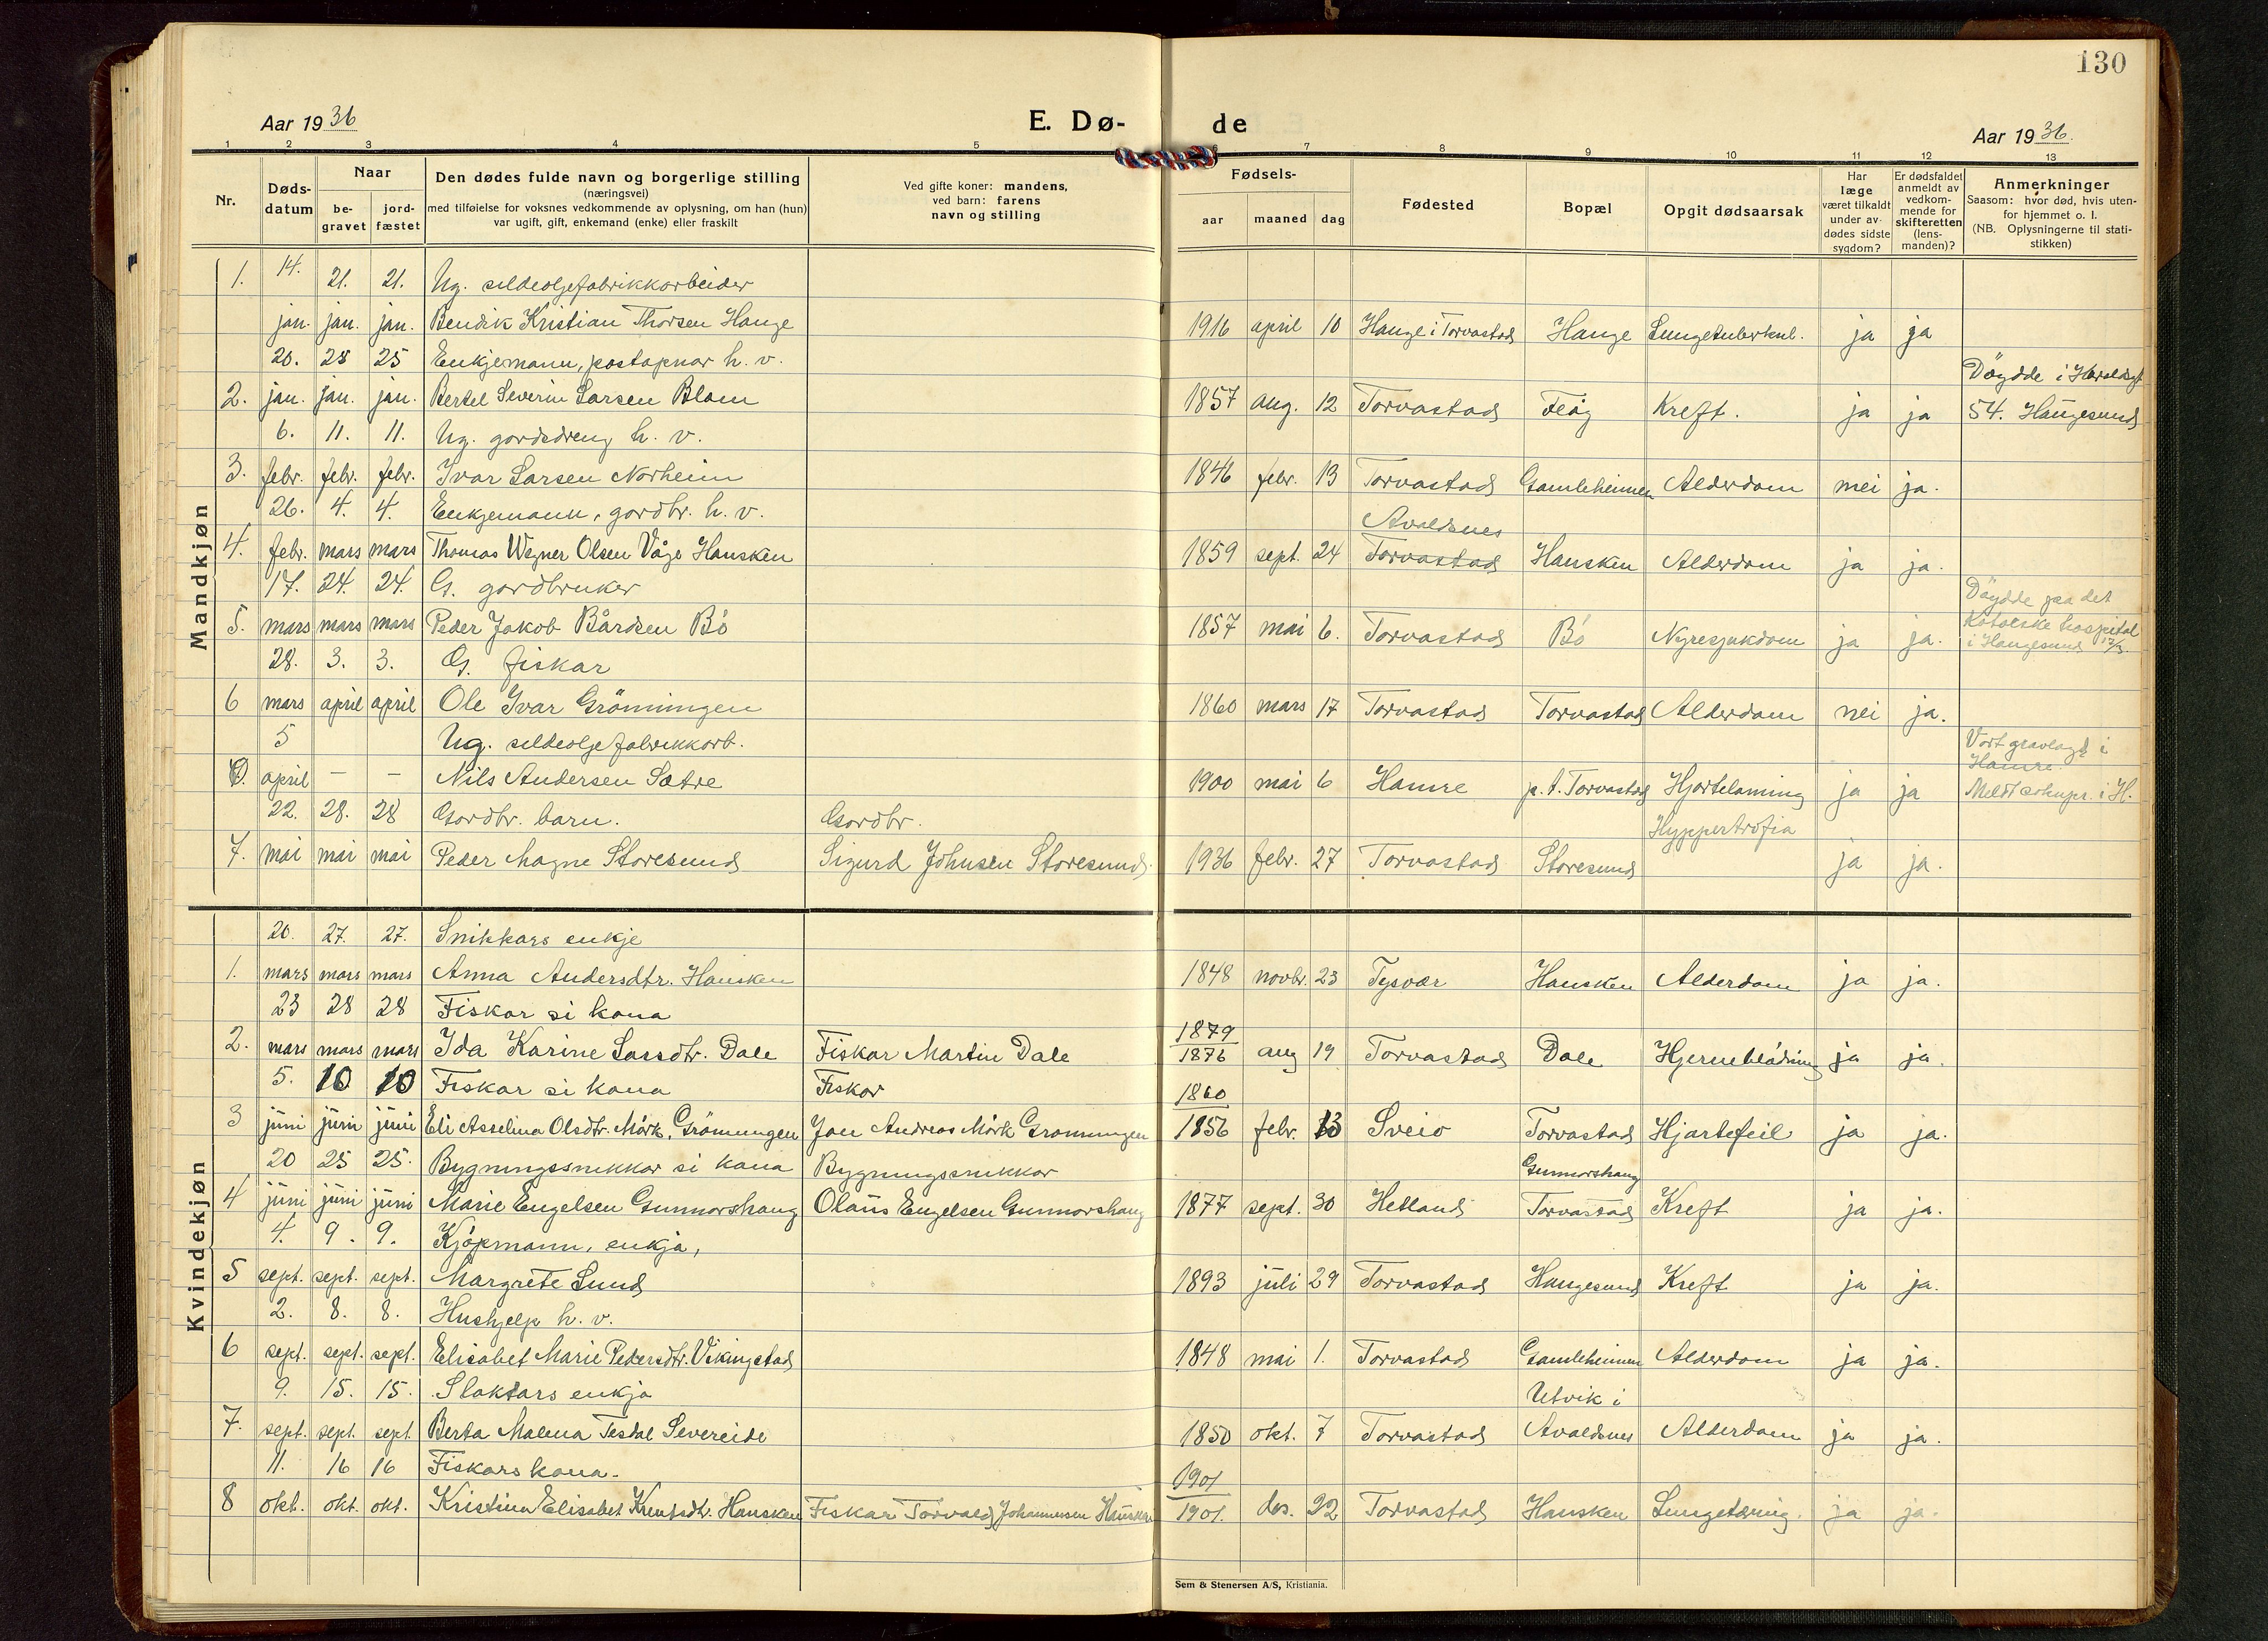 130
Aar 1936 E. Dø- de Aar 1936.
1 2 3 4 5 6 7 8 9 10 11 12 13
Nr.
Døds-
datum
Naar
be-
gravet
jord-
fæstet
Den dødes fulde navn og borgerlige stilling
(næringsvei)
med tilføielse for voksnes vedkommende av oplysning, om han (hun)
var ugift, gift, enkemand (enke) eller fraskilt
Ved gifte koner: mandens,
ved barn: farens
navn og stilling
Fødsels-
aar maaned dag
Fødested
Bopæl
Opgit dødsaarsak
Har
læge
været tilkaldt
under av-
dødes sidste
sygdom?
Er dødsfaldet
anmeldt av
vedkom-
mende for
skifteretten
(lens-
manden)?
Anmerkninger
Saasom: hvor død, hvis uten-
for hjemmet o. l.
(NB. Oplysningerne til stati-
stikken)
Mandkjøn
1. 14. 21. 21. Ug. sildeoljefabrikkarbeider
jan. jan. jan. Bendik Kristian Thorsen Hauge 1916 april 10 Hauge i Torvastad Hauge Lungetuberkul. ja ja
20. 28 25 Enkjemann, postapnar h. v.
2. jan. jan. jan. Bertel Severin Larsen Blom 1857 aug. 12 Torvastad Feøy Kreft. ja ja Döydde i Haraldsgt 54. Haugesund
6. 11. 11. Ug. gardsdreng h. v.
3. febr. febr. febr. Ivar Larsen Norheim 1846 febr. 13 Torvastad Gamleheimen Alderdom nei ja.
26. 4. 4. Enkjemann, gardbr. h. v. Avaldsnes
4. febr. mars mars Thomas Wegner Olsen Våge Hausken 1859 sept. 24 Torvastad Hausken Alderdom ja ja.
17. 24. 24. G. gardbruker
5. mars mars mars Peder Jakob Bårdsen Bö 1857 mai 6. Torvastad Bö Nyresjukdom ja ja. Döydde paa det Katolske hospital i Haugesund 17/3.
28. 3. 3. G. fiskar
6 mars april april Ole Ivar Grönningen 1860 mars 17 Torvastad Torvastad Alderdom nei ja.
5 Ug. sildeoljefabrikkarb.
april – – Nils Andersen Sætre 1900 mai 6 Hamre p. t. Torvastad Hjartelaming ja ja Vart gravlagd i Hamre. Meldt soknepr. i H.
22. 28. 28 Gardbr. barn. Gardbr. Hyppertrofia
7. mai mai mai Peder Magne Storesund Sigurd Johnsen Storesund 1936 febr. 27 Torvastad Storesund ja ja.
Kvindekjøn
20. 27. 27. Snikkars enkje
1. mars mars mars Anna Andersdtr. Hausken 1848 novbr. 23 Tysvær Hausken Alderdom ja ja.
23 28 28 Fiskar si kona
2. mars mars mars Ida Karine Larsdtr. Dale Fiskar Martin Dale 1879 1876 aug 19 Torvastad Dale Hjerneblödning ja ja.
5. 10 10 Fiskar si kona Fiskar
3 juni juni juni Eli Asselina Olsdtr. Mörk, Grönningen Jon Andreas Mörk Gronningen 1860 1856 febr. 13 Sveio Torvastad Hjartefeil ja ja.
20 25 25. Bygningssnikkar si kona Bygningssnikkar
4 juni juni juni Marie Engelsen Gunnarshaug Olaus Engelsen Gunnarshaug 1877 sept. 30 Hetland Gunnarshaug Torvastad Kreft ja ja.
4. 9. 9. Kjöpmann, enkja,
5 sept. sept. sept. Margrete Lund 1893 juli 29 Torvastad Haugesund Kreft ja ja.
2. 8. 8. Hushjelp h. v.
6 sept. sept. sept. Elisabet Marie Pedersdtr. Vikingstad 1848 mai 1. Torvastad Gamleheimen Alderdom ja ja.
9. 15. 15. Slaktars enkja
7. sept. sept. sept Berta Malena Tesdal Severeide 1850 okt. 7 Torvastad Utvik i Avaldsnes Alderdom ja ja.
11. 16 16 Fiskars kona.
8 okt. okt. okt. Kristina Elisabet Knutsdtr. Hausken Fiskar Torvald Johannesen Hausken 1901 1901. des. 22 Torvastad Hausken Lungetæring. ja ja.
Sem & Stenersen A/S, Kristiania.